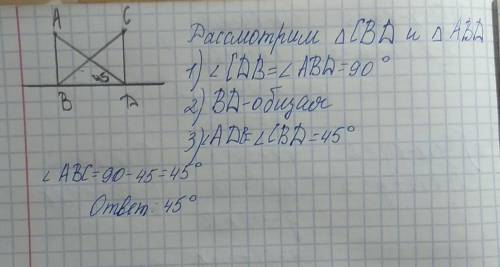 A C
45
B D
Рассмотрим △CBD и △ABD
1) ∠CDB=∠ABD=90°
2) BD-общая
3) ∠ADB=∠CBD=45°
∠ABC=90-45=45°
Ответ: 45°